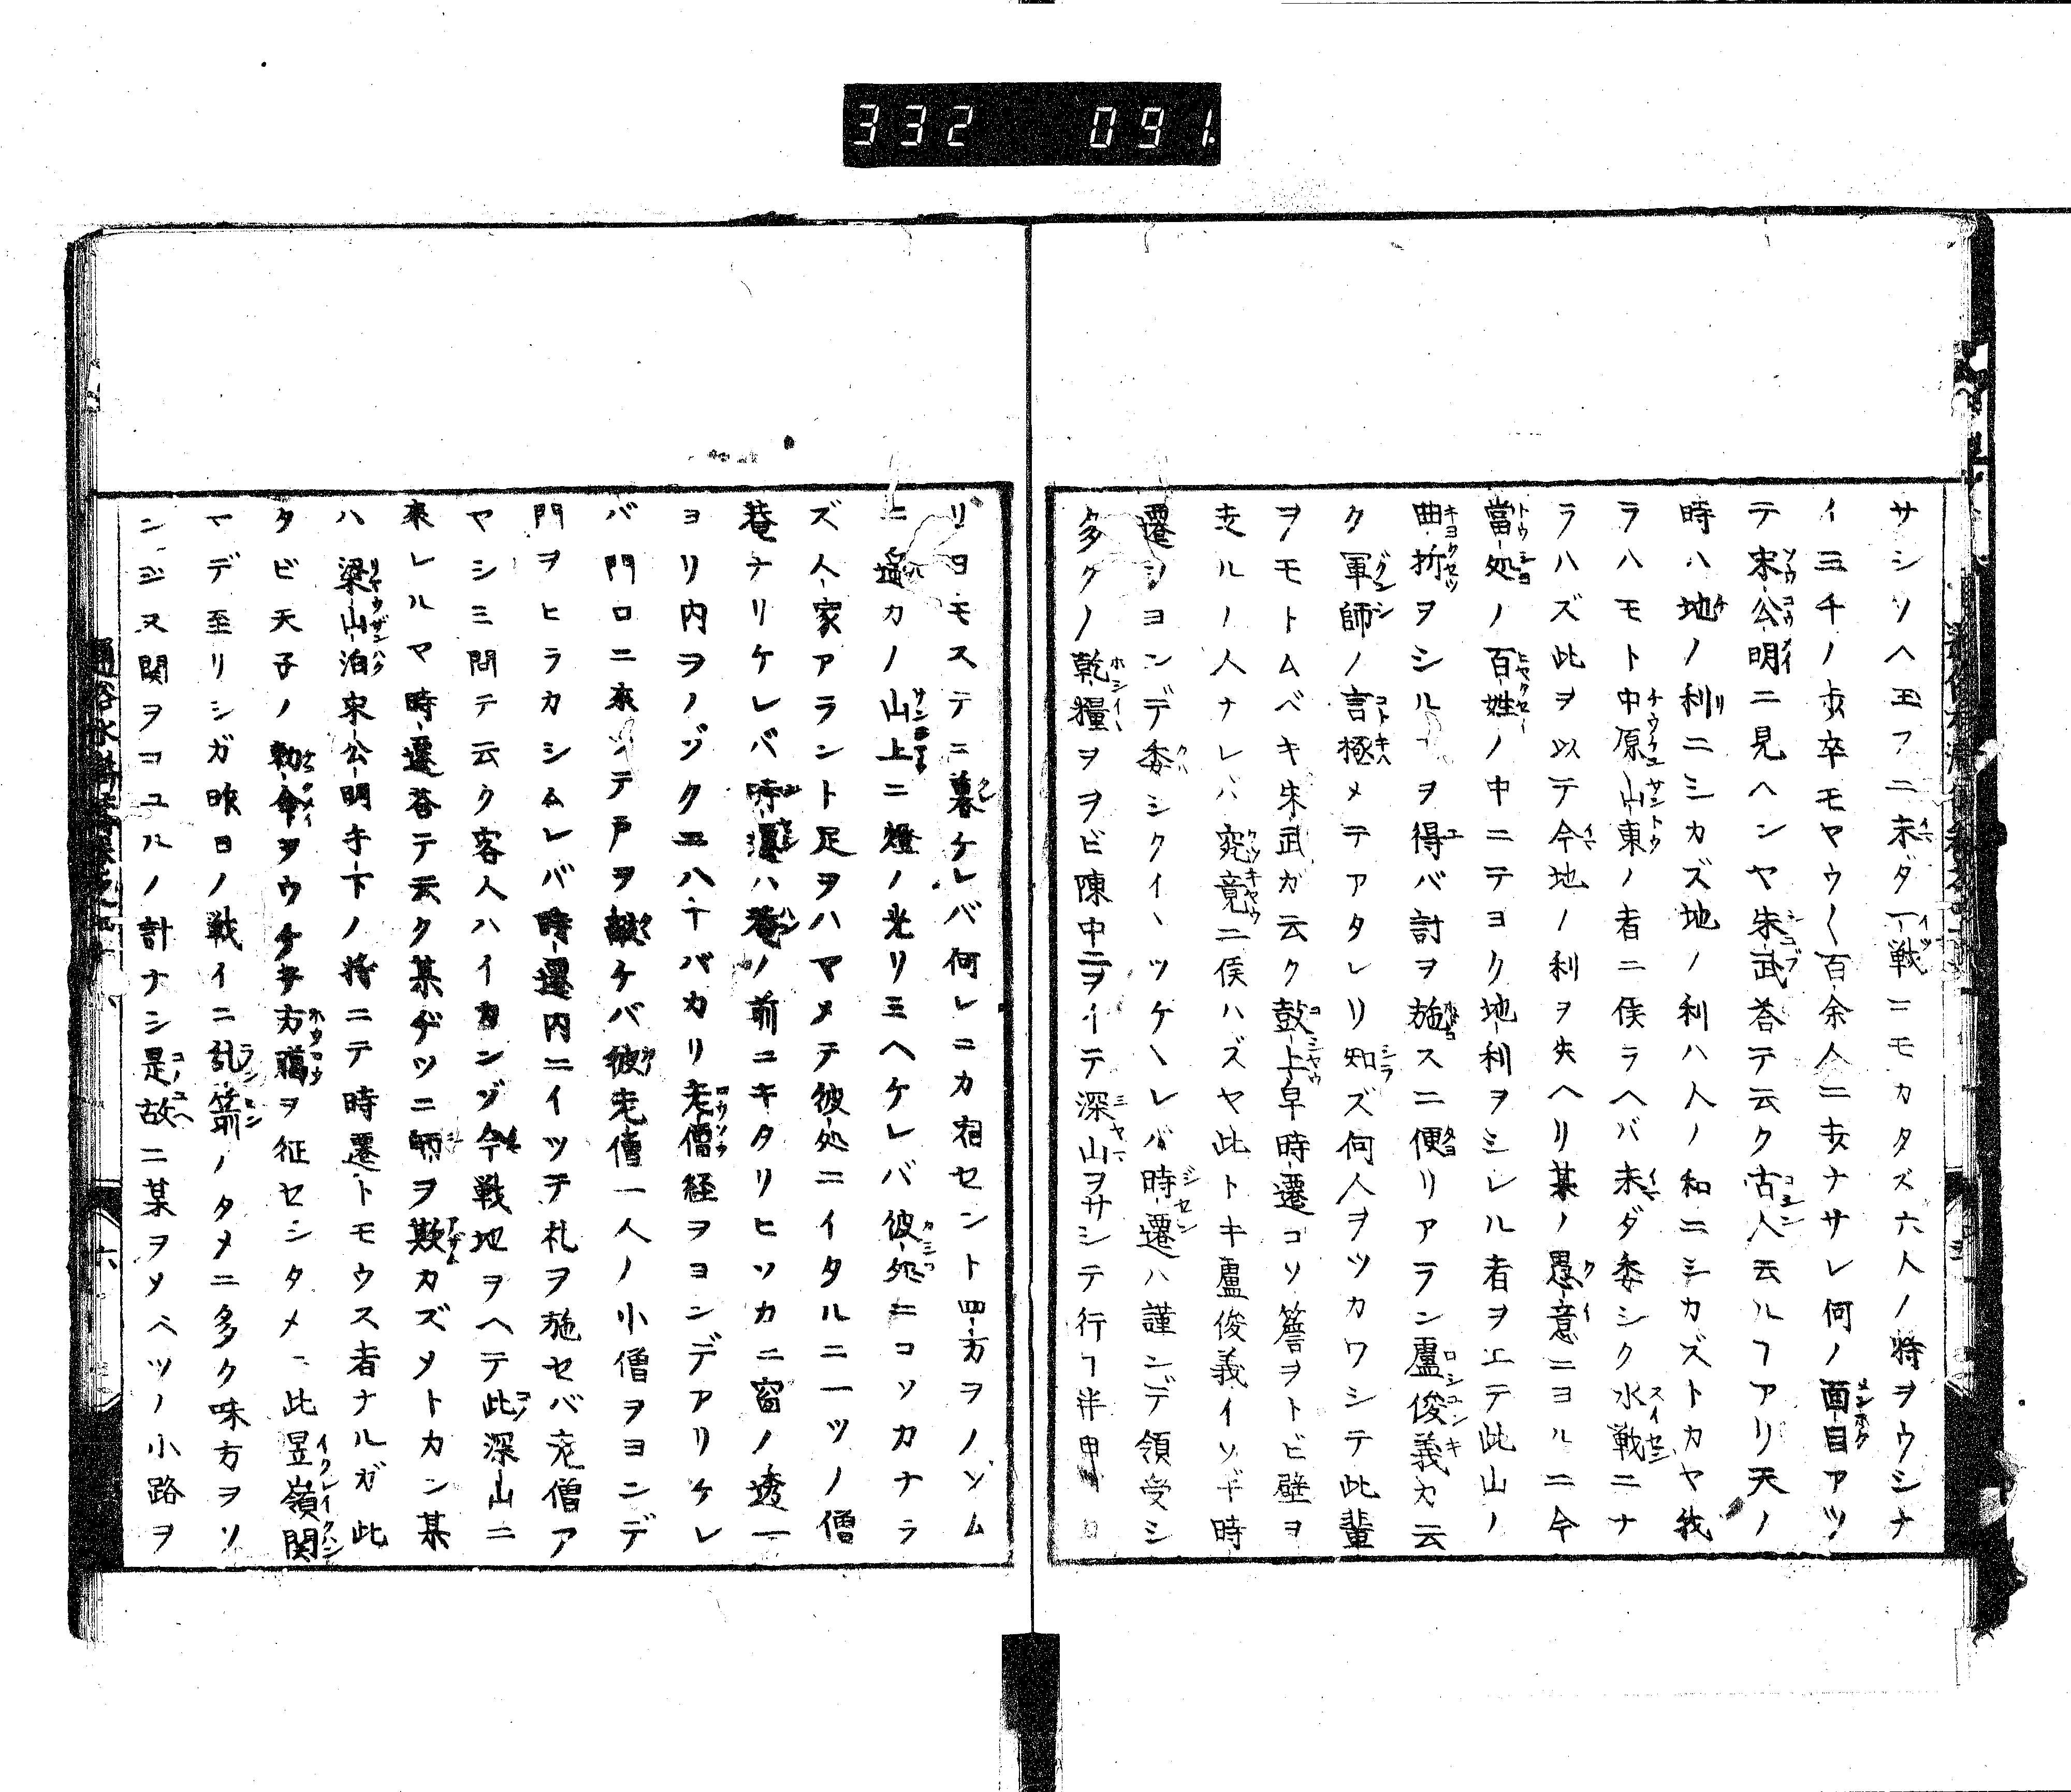 332 091
サシソヘ玉フニ未ダ一戦ニモカタズ六人ノ将ヲウシナ
イ三千ノ歩卒モヤウ〱百余人ニ歩ナサレ何ノ面目アツ
テ宋公明ニ見ヘンヤ朱武荅テ云ク古人云ルヿアリ天ノ
時ハ地ノ利ニシカズ地ノ利ハ人ノ和ニシカズトカヤ我
ラハモト中原山東ノ者ニ侯ラヘバ未ダ委シク水戦ニナ
ラハズ此ヲ以テ今地ノ利ヲ失ヘリ某ノ愚意ニヨルニ今
當処ノ百姓ノ中ニテヨク地利ヲシレル者ヲエテ此山ノ
曲折ヲシルヿヲ得バ討ヲ施スニ便リアラン盧俊義カ云
ク軍師ノ言極メテアタレリ知ズ何人ヲツカワシテ此輩
ヲモトムベキ朱武ガ云ク鼓上皁時遷コソ簷ヲトビ壁ヲ
走ルノ人ナレバ究竟ニ侯ハズヤ此トキ盧俊義イソギ時
遷ヲヨンデ委シクイヽツケヽレバ時遷ハ謹ンデ領受シ
多クノ乾糧ヲヲビ陳中ニヲイテ深山ヲサシテ行ヿ半
リヨモステニ暮ケレバ何レニカ宿セント四方ヲノゾム
ニ遙カノ山上ニ燈ノ光リミヘケレバ彼処ニコソカナラ
ズ人家アラント足ヲハマメテ彼処ニイタルニ一ツノ僧
菴ナリケレバ時遷ハ菴ノ前ニキタリヒソカニ窗ノ透一
ヨリ内ヲノゾクニ八十バカリ老僧経ヲヨンデアリケレ
バ門口ニ来ツテ戸ヲ敲ケバ彼老僧一人ノ小僧ヲヨンデ
門ヲヒラカシムレバ時遷内ニイツテ礼ヲ施セバ老僧ア
ヤシミ問テ云ク客人ハイカンゾ今戦地ヲヘテ此深山ニ
来レルマ時遷荅テ云ク某ダツニ師ヲ欺カズメトカン某
ハ梁山泊宋公明手下ノ将ニテ時遷トモウス者ナルガ此
タビ天子ノ勅命ヲウケテ方臘ヲ征セシタメニ此昱嶺関
マデ至リシガ昨日ノ戦イニ乱箭ノタメニ多ク味方ヲソ
ンジ又関ヲコユルノ計ナシ是故ニ某ヲメベツノ小路ヲ
六